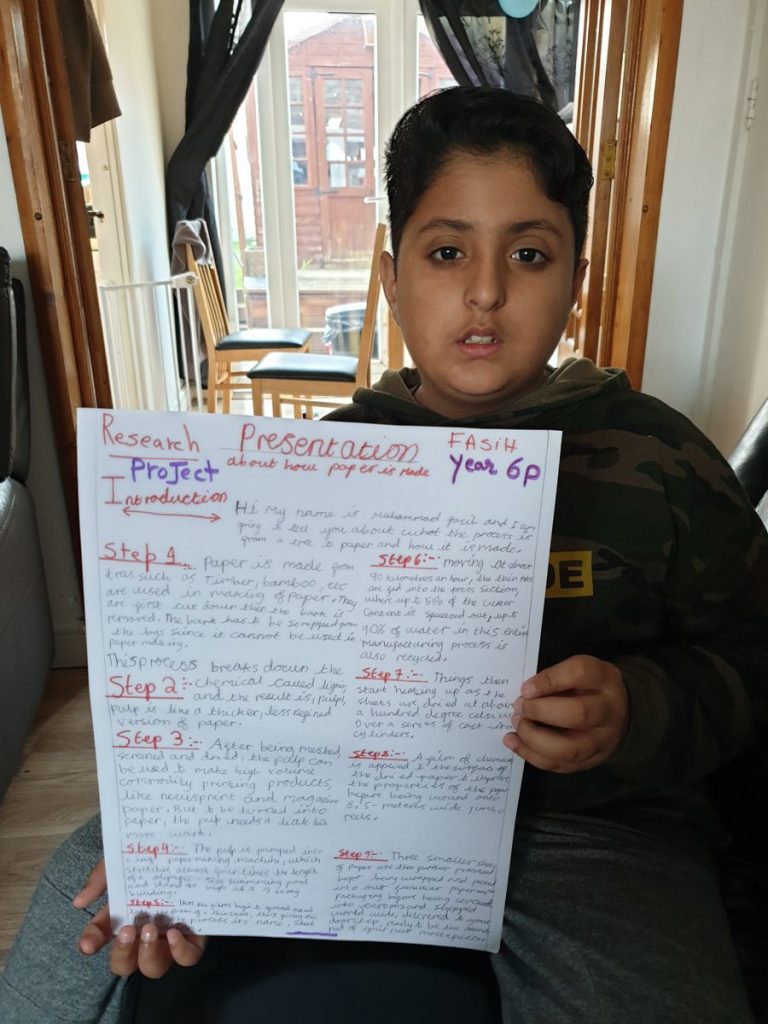 Research Presentation FASIH
Project about how paper is made Year 6p
Introduction
Hi My name is Muhammad Fasih and I am
going to tell you about what the process is
from a tree to paper and how it is made.
Step 1 Paper is made from
trees such as Timber, bamboo, etc
are used in making of paper. They
are first cut down then the bark is
removed. The bark has to be scrapped from
the logs since it cannot be used in
paper making.
This process breaks down the
Step 2:- chemical called lignin
and the result is, pulp,
pulp is like a thicker, less refined
version of paper.
Step 3 :- After being meshed,
screaned and dried, the pulp can
be used to make high volume
commodity printing products,
like newsprint and magazine
paper. But to be turned into
paper, the pulp needs a little bit
more work.
Step 4:- The pulp is pumped into
a paper making machine, which
stretches almost four times the length
of a olympic swimming pool
and stand as high as a story
building.
Step 5:- Here the fibres begin to spread and
thin sheet, this
process its name, sheet
Step 6:- moving at about
90 kilometres an hour, the thin
are fed into the press section,
where up to 50% of the water
content is squeezed out, up to
90% of water in this entire
manufacturing process is
also recycled.
Step 7:- Things then
start heating up as the
sheets are dried at above
a hundred degree celsius
over a series of cast-iron
cylinders.
Step 8:- A film of
is applied to the surface of
the dried paper to improve
the properties of the paper
before being wound onto
8.5- metres wide jumbo
reels.
Step 9:- Three smaller
of paper are then further processed
before being wrapped and packed
into our familiar paper
packaging before being
into cartons and shipped
world wide, delivered to your
doorstep, ready to be the
part of your next masterpiece.
DE